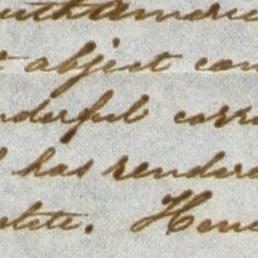 South Americ
object con
nderful corr
has rendere
plete. Henc